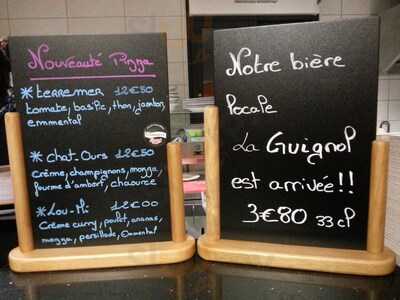 Nouveauté Pizza
* terre mer 12€50
tomate, basilic, thon, jambon,
emmental
* Chat-Ours 12€50
crème, champignons, mozza,
fourme d'ambert, chaource
* Lou-Mi 12€00
Crème curry, poulet, ananas,
mozza, persillade, Emmental
Notre bière
Locale
La Guignol
est arrivée!!
3€80 33 cl